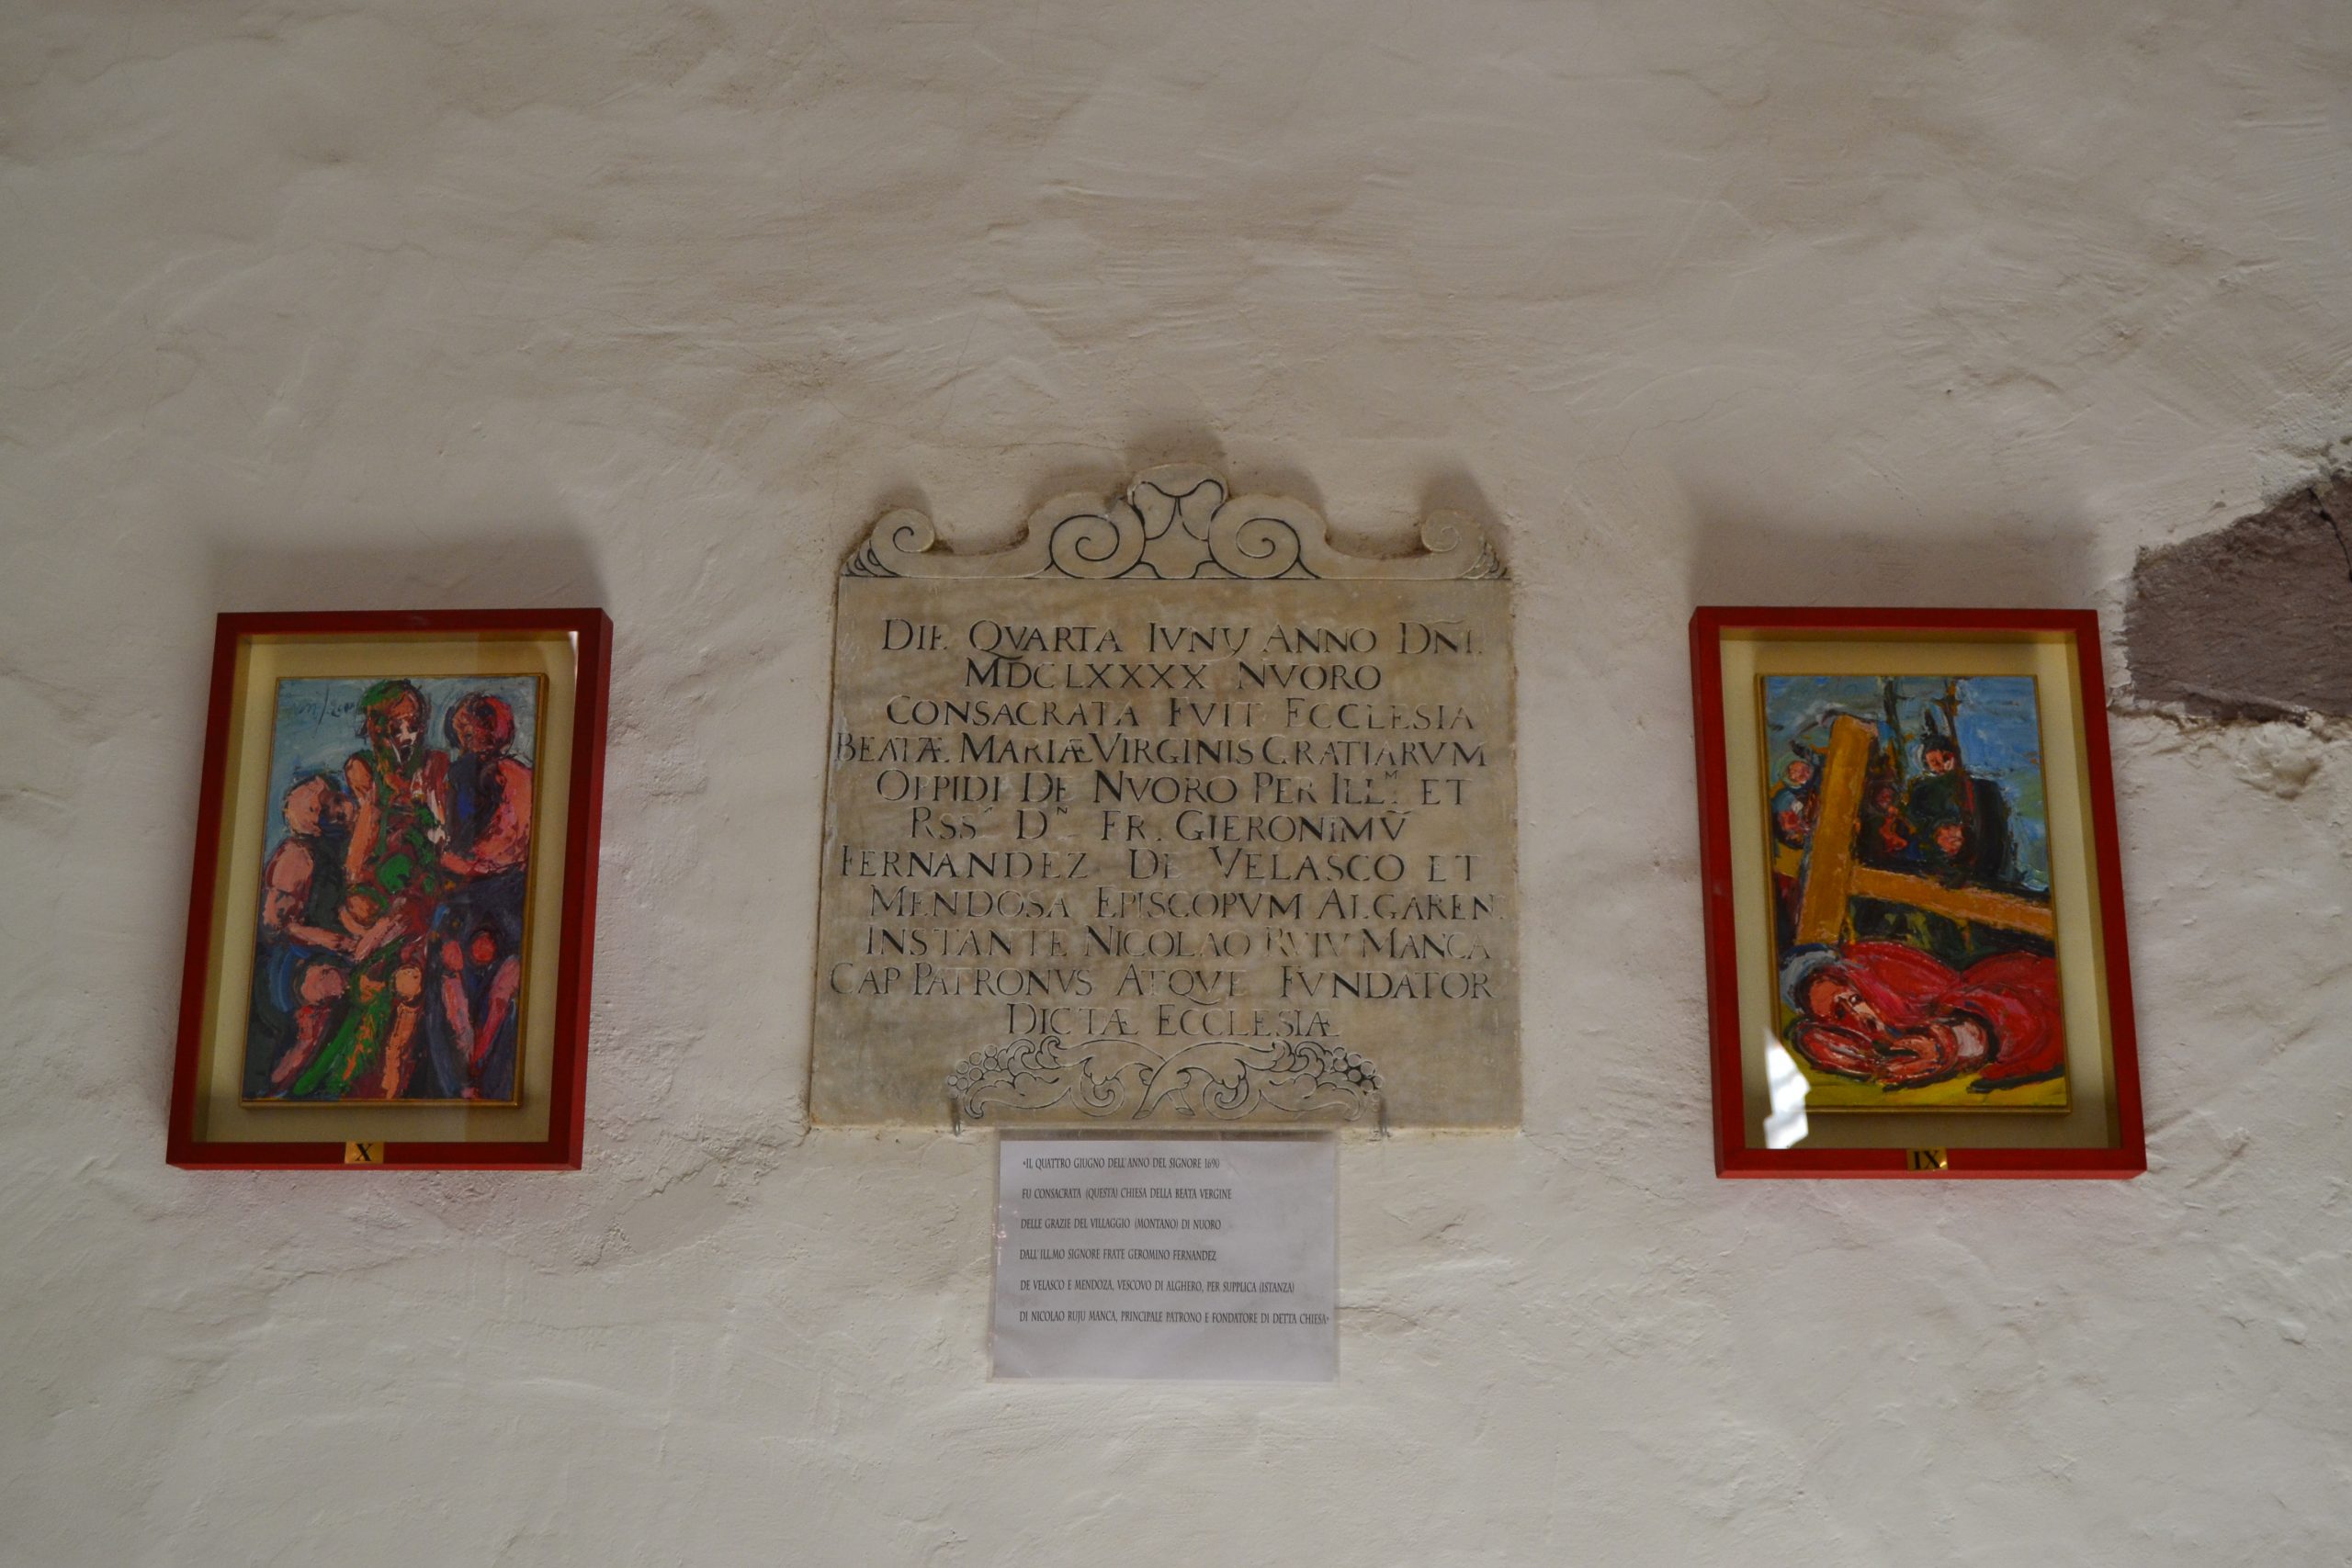 DIE QVARTA IVNIJ ANNO DÑI.
MDCLXXXX NVORO
CONSACRATA FVIT ECCLESIA
BEATÆ MARIÆ VIRGINIS GRATIARVM
OPPIDI DE NVORO PER ILL.M ET
RSS. D.N FR. GIERONIMV̄
FERNANDEZ DE VELASCO ET
MENDOSA EPISCOPVM ALGAREN.
INSTANTE NICOLAO RVIV MANCA
CAP PATRONVS ATQVE FVNDATOR
DICTÆ ECCLESIÆ
«IL QUATTRO GIUGNO DELL'ANNO DEL SIGNORE 1690
FU CONSACRATA (QUESTA) CHIESA DELLA BEATA VERGINE
DELLE GRAZIE DEL VILLAGGIO (MONTANO) DI NUORO
DALL'ILL.MO SIGNORE FRATE GEROMINO FERNANDEZ
DE VELASCO E MENDOZA, VESCOVO DI ALGHERO, PER SUPPLICA (ISTANZA)
DI NICOLAO RUJU MANCA, PRINCIPALE PATRONO E FONDATORE DI DETTA CHIESA»
X
IX